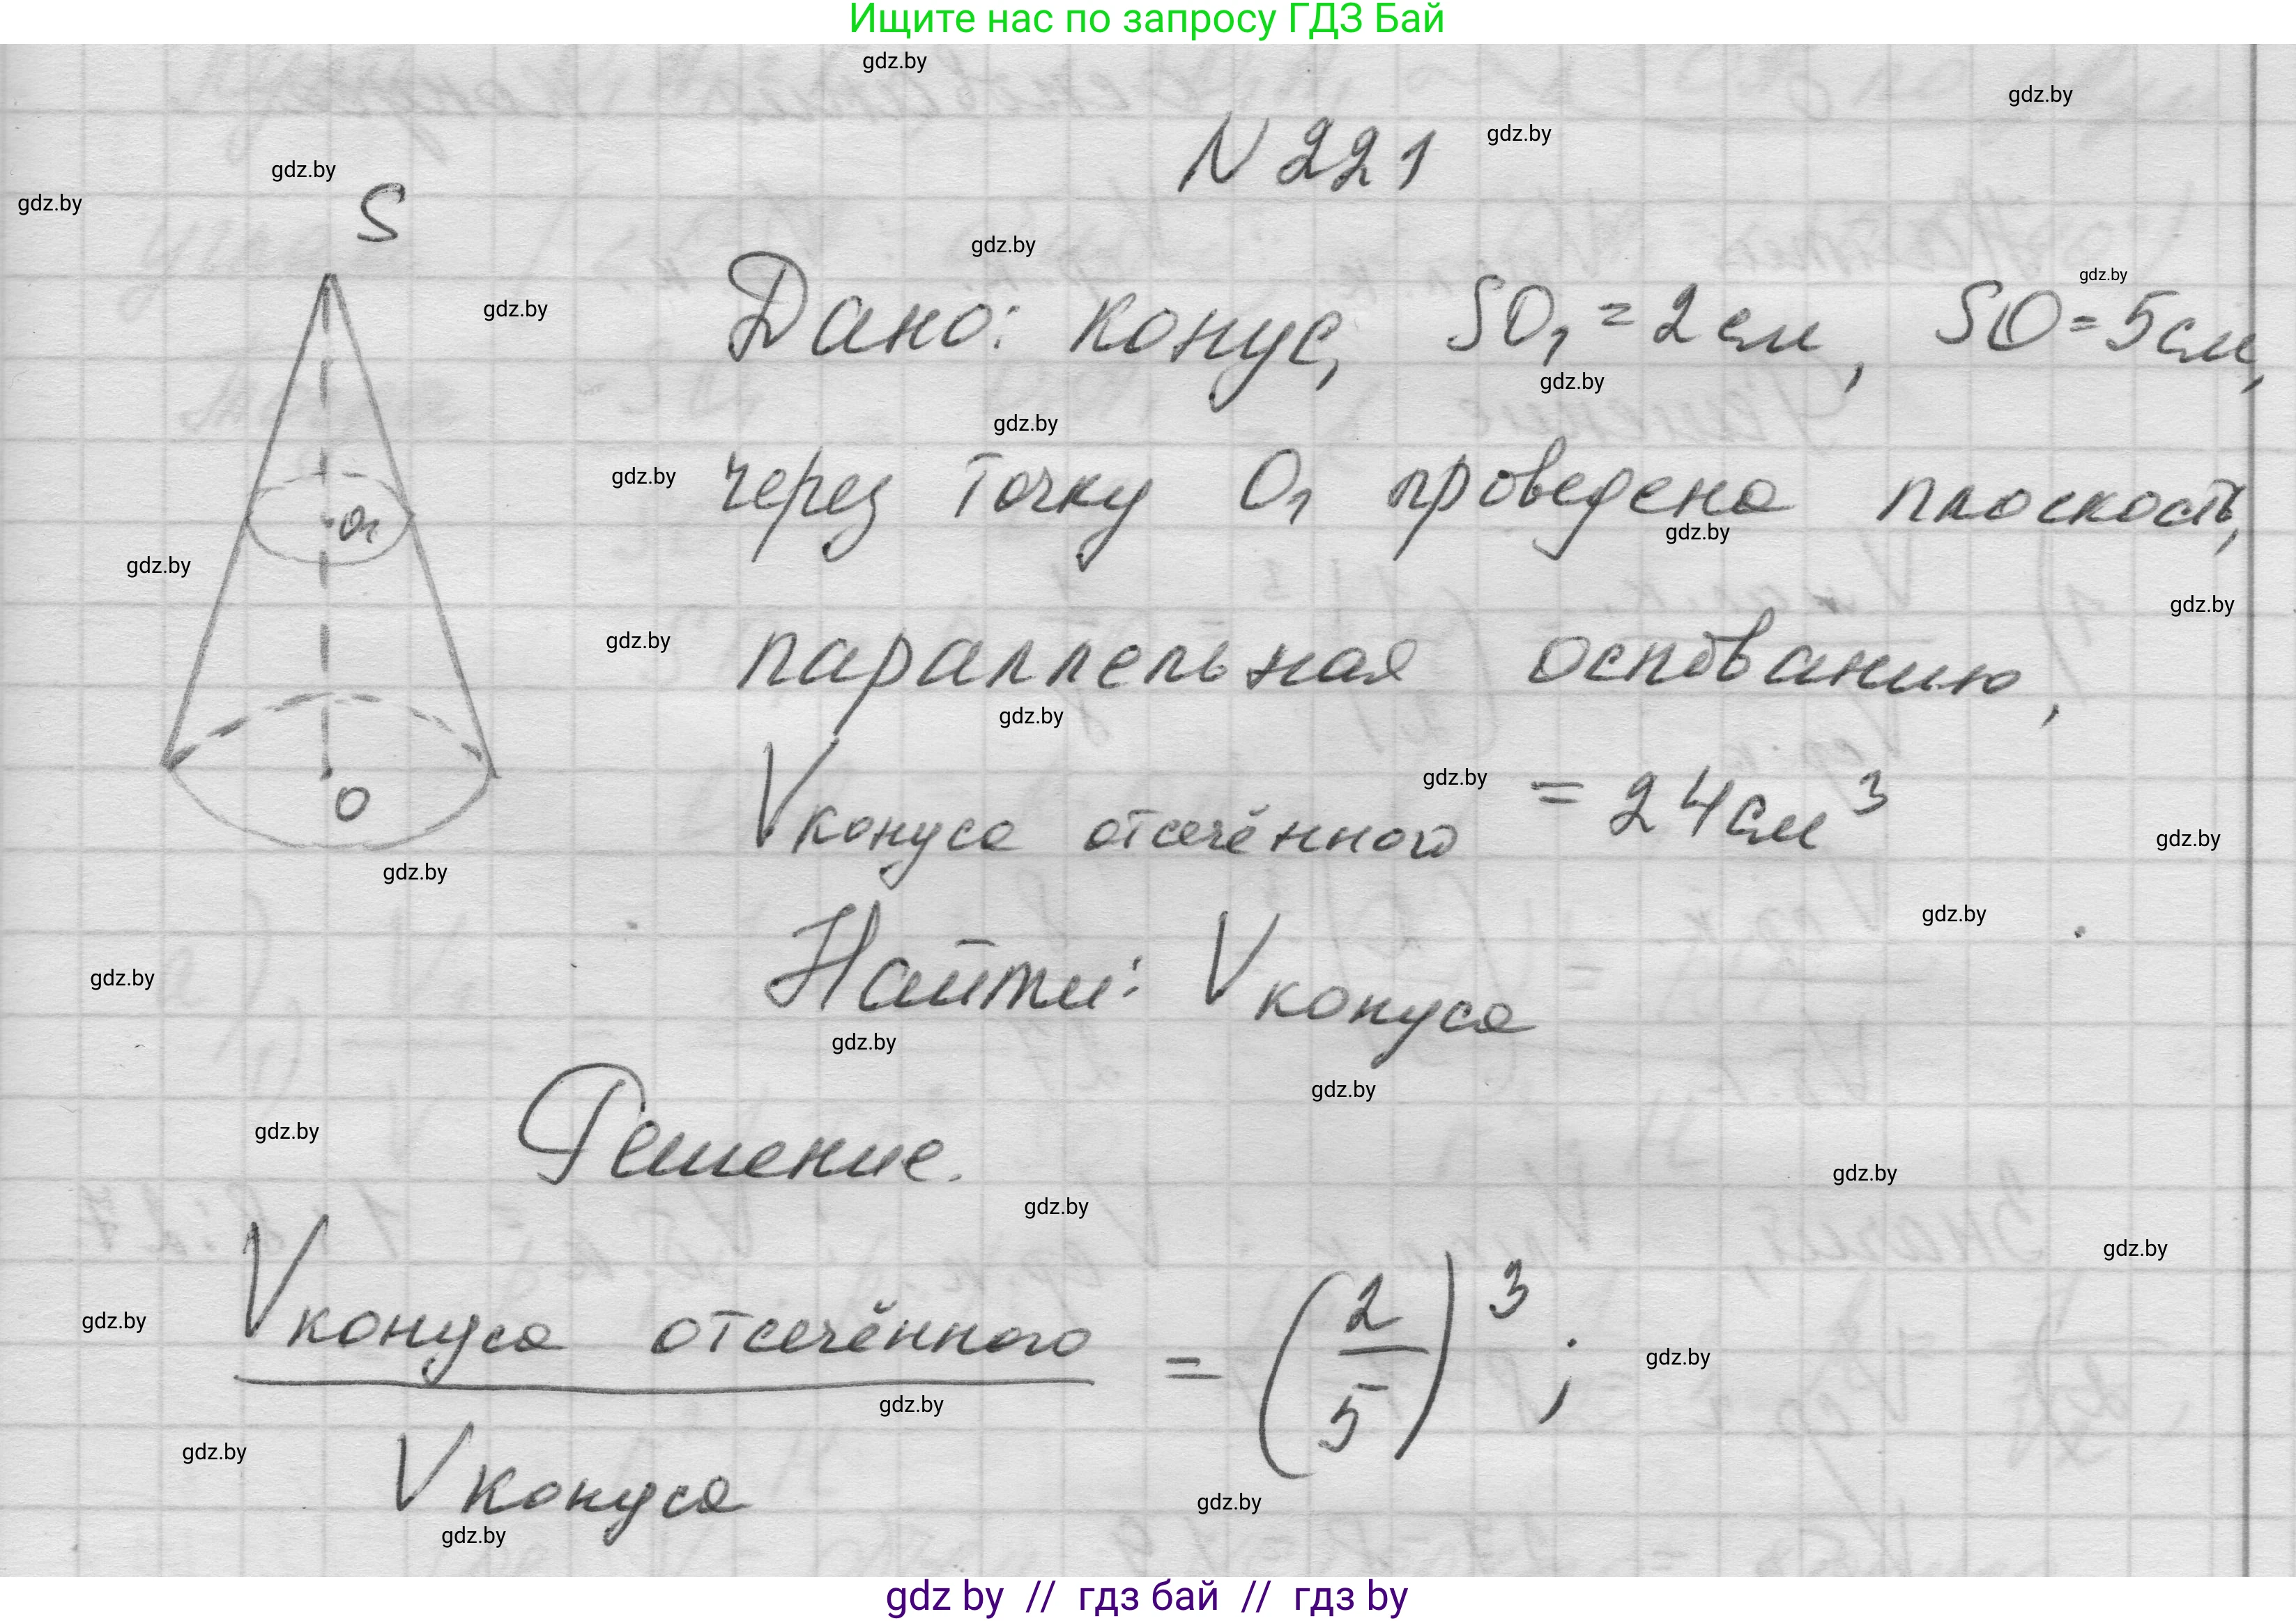 Ищите нас по запросу ГДЗ Бай
N 221
S
Дано: конус, SO₁ = 2 см, SO = 5 см,
через точку O₁ проведена плоскость,
O₁
параллельная основанию,
O
V конуса отсечённого = 24 см³
Найти: V конуса
Решение.
V конуса отсечённого
/ V конуса = (2/5)³;
gdz by // гдз бай // гдз by